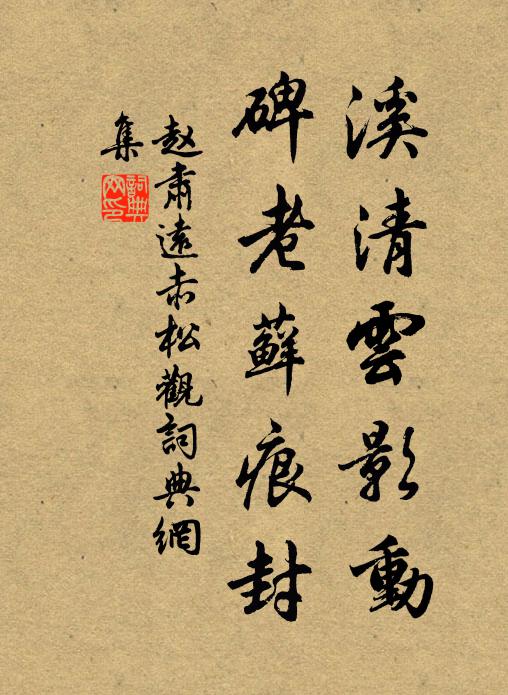 溪清雲影動
碑老蘚痕封
赵肅遠赤松觀詞典網
集
詞典網印